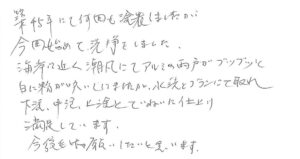 築45年にて何回も塗装しましたが
今回始めて洗浄をしました。
海岸に近く潮風にてアルミの雨戸がブツブツと
白に粉が吹いていましたが、水洗とブラシにて取れ
下塗、中塗、上塗とていねいに仕上り
満足しています。
今後も御願いしたいと思います。